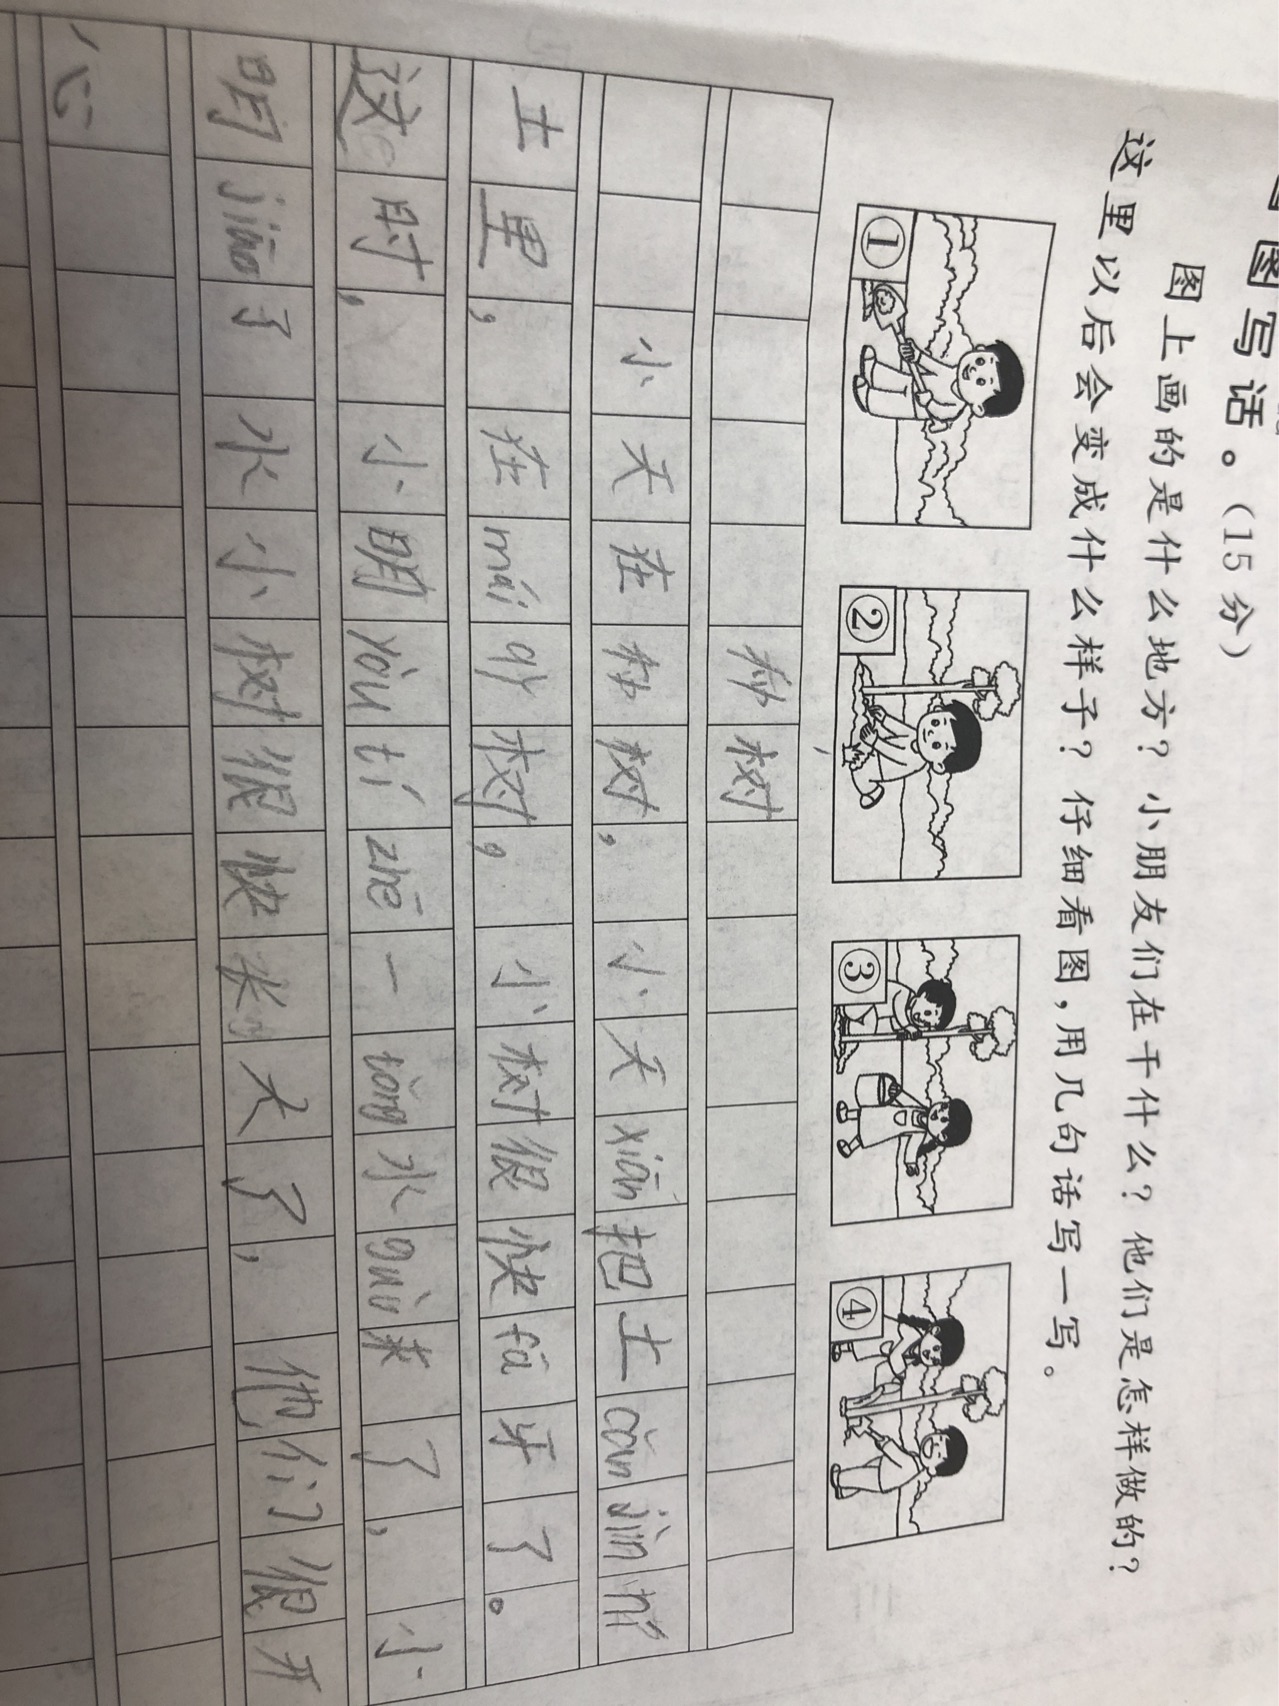 图写话。(15分)
图上画的是什么地方?小朋友们在干什么?他们是怎样做的?
这里以后会变成什么样子?仔细看图,用几句话写一写。
① ② ③ ④
种树
小天在种树,小天xiān把土cǎn jìn ní
土里,在mái qǐ树,小树很快fā牙了。
这时,小明yòu tí zhē一tǒng水guò来了,小
明jiāo了水小树很快长大了,他们很开
心